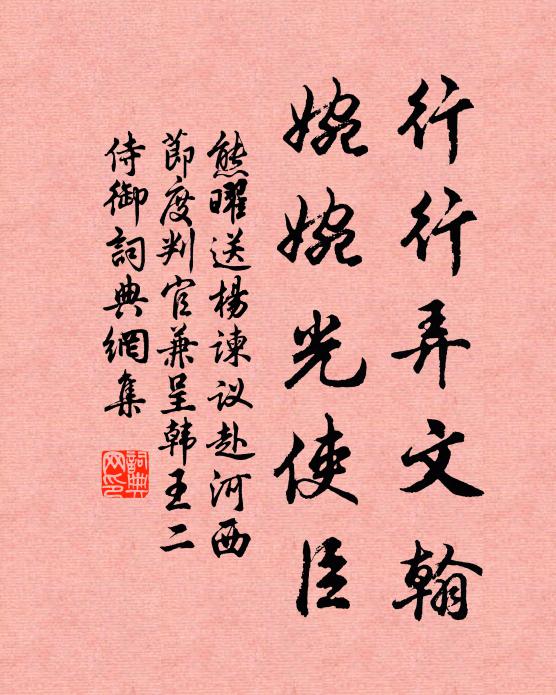 行行弄文翰
婉婉光使臣
熊曜送楊諫议赴河西
節度判官兼呈韩王二
侍御詞典網集
詞典网印